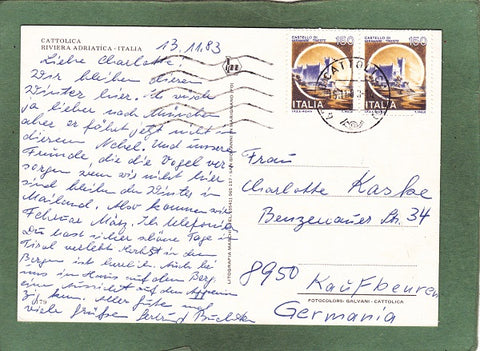 CATTOLICA
RIVIERA ADRIATICA - ITALIA
13.11.83
Liebe Charlotte!
Wir bleiben diesen
Winter hier. Ich würde
ja lieber nach München
aber er fährt jetzt nicht in
diesem Nebel. Und unsere
Freunde, die die Vögel ver-
sorgen wenn wir nicht hier
sind bleiben den Winter in
Mailand. Also kommen wir
Februar März. Ich telefoniere
Du hast sicher schöne Tage in
Tirol verlebt Herbst in den
Bergen ist herrlich. Auch bei
uns im Haus auf dem Berg
eine Aussicht auf den Appenin
Alles Gute und
viele Grüße
CASTELLO DI
MIRAMARE TRIESTE
150
ITALIA
CASTELLO DI
MIRAMARE TRIESTE
150
ITALIA
CATTOLICA
Frau
Charlotte Kaske
Benzenauer Str. 34
8950 Kaufbeuren
Germania
FOTOCOLORS: GALVANI - CATTOLICA